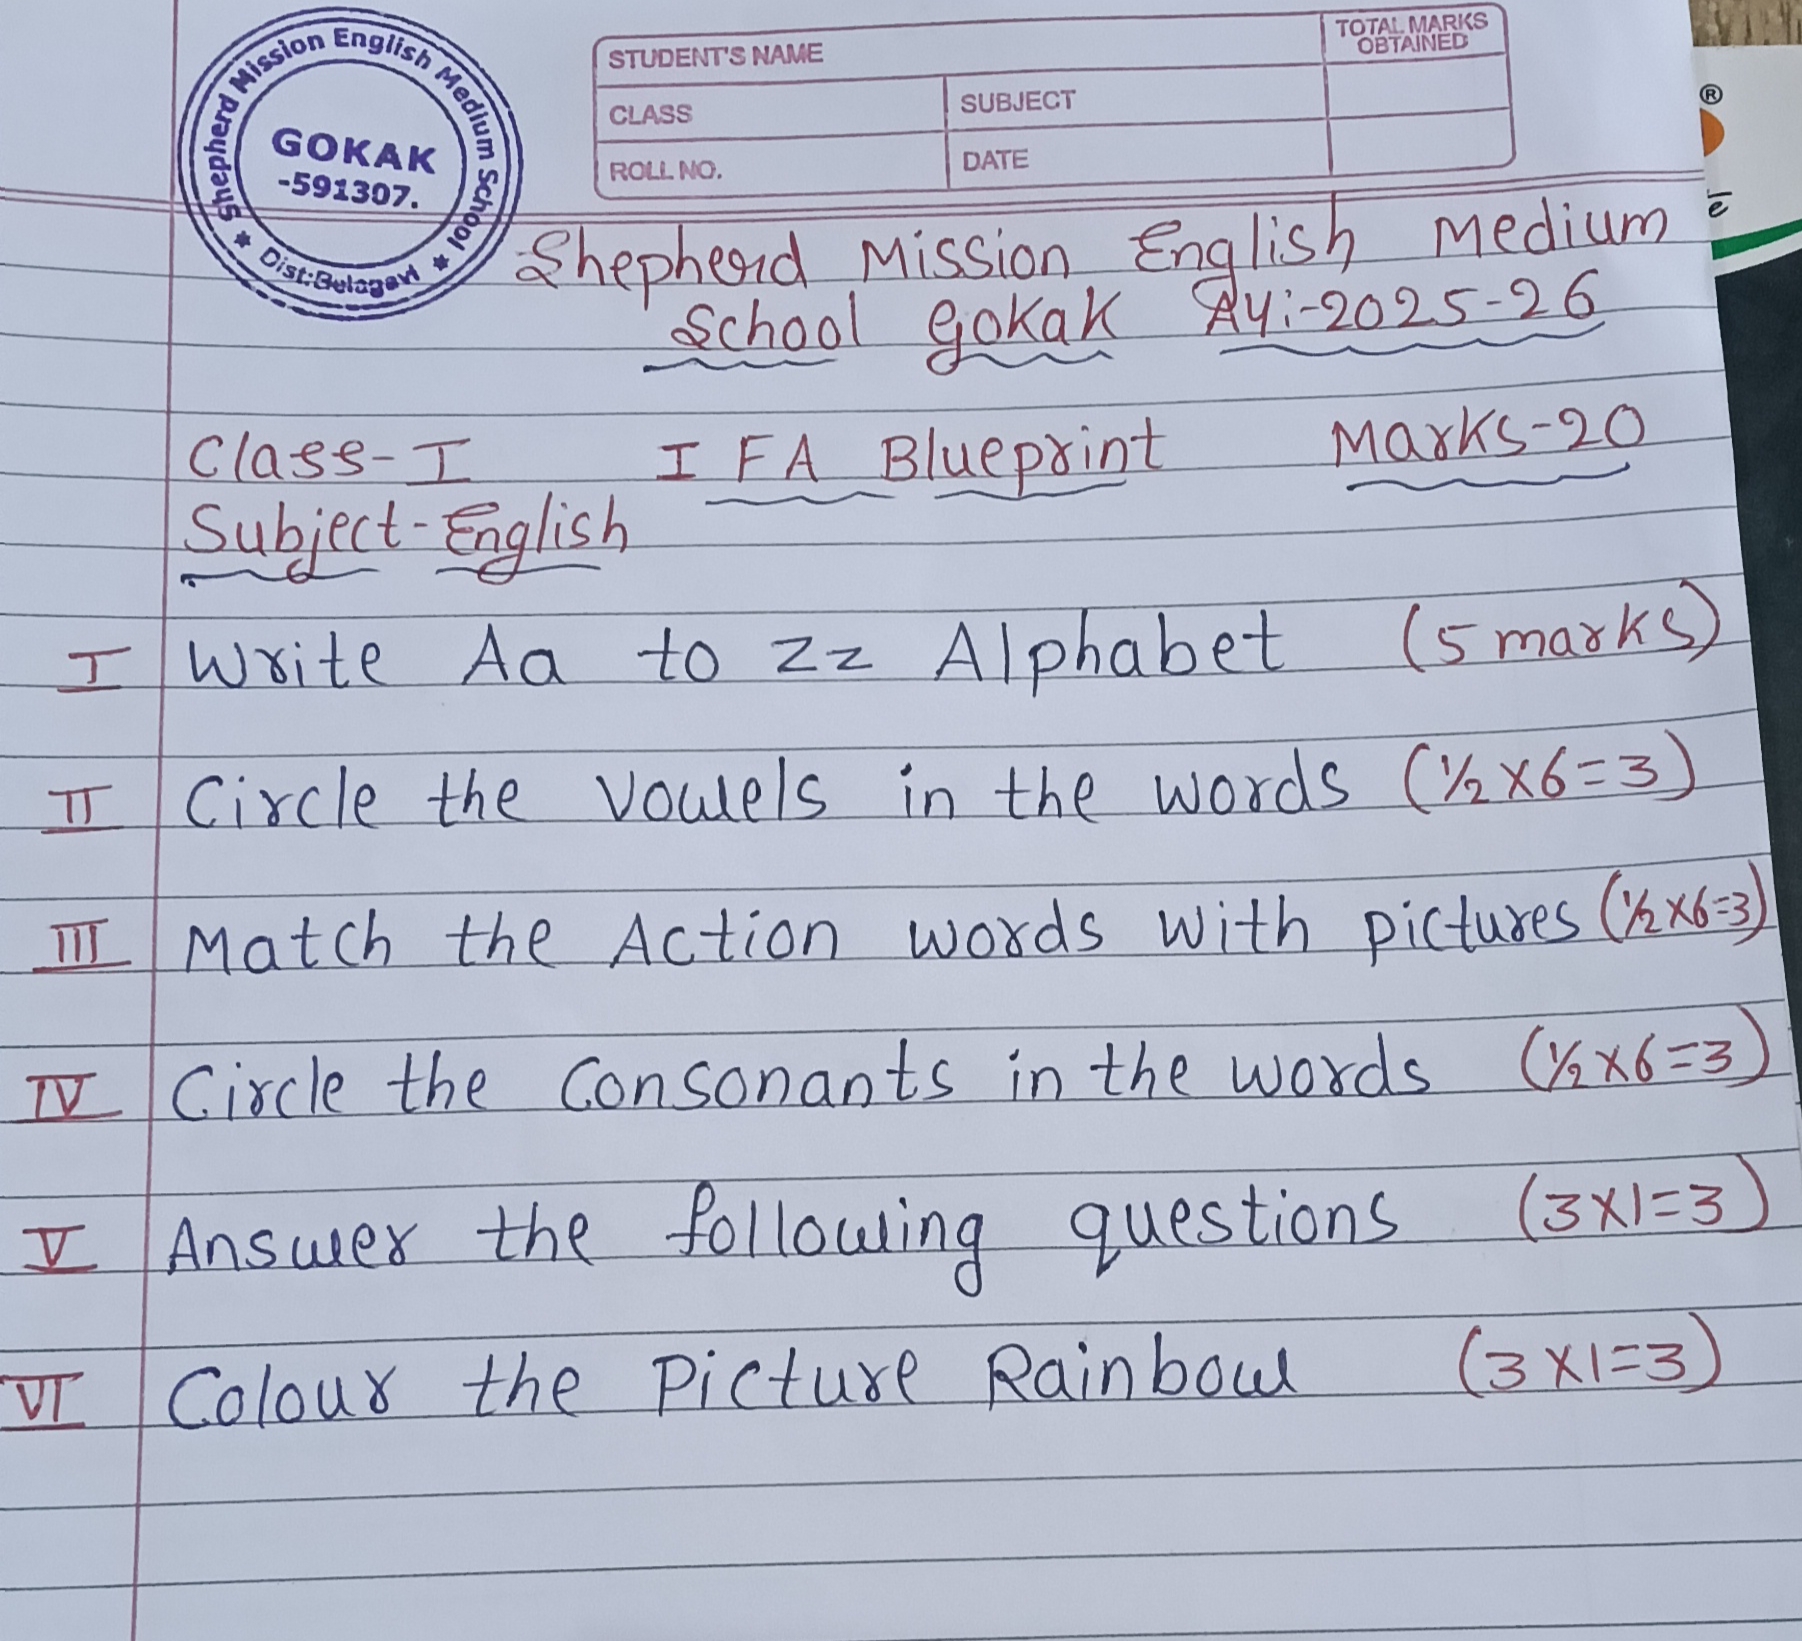 Shepherd Mission English Medium School
GOKAK
-591307.
Dist:Belagavi
STUDENT'S NAME
TOTAL MARKS OBTAINED
CLASS
SUBJECT
ROLL NO.
DATE
®
Shepherd Mission English Medium
School Gokak AY:-2025-26
Class-I I FA Blueprint Marks-20
Subject-English
I Write Aa to Zz Alphabet (5 marks)
II Circle the Vowels in the words (½×6=3)
III Match the Action words with pictures (½×6=3)
IV Circle the Consonants in the words (½×6=3)
V Answer the following questions (3×1=3)
VI Colour the Picture Rainbow (3×1=3)